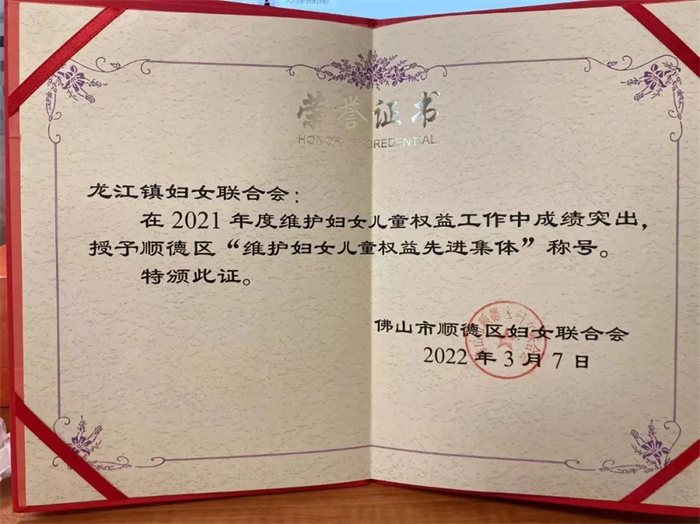 荣誉证书
龙江镇妇女联合会：
在 2021 年度维护妇女儿童权益工作中成绩突出，
授予顺德区“维护妇女儿童权益先进集体”称号。
特颁此证。
佛山市顺德区妇女联合会
2022 年 3 月 7 日